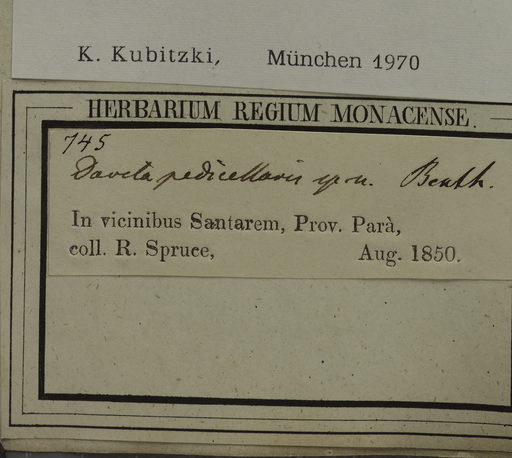 K. Kubitzki, München 1970
HERBARIUM REGIUM MONACENSE.
745
pedicellaris sp. n. Benth.
In vicinibus Santarem, Prov. Parà,
coll. R. Spruce, Aug. 1850.